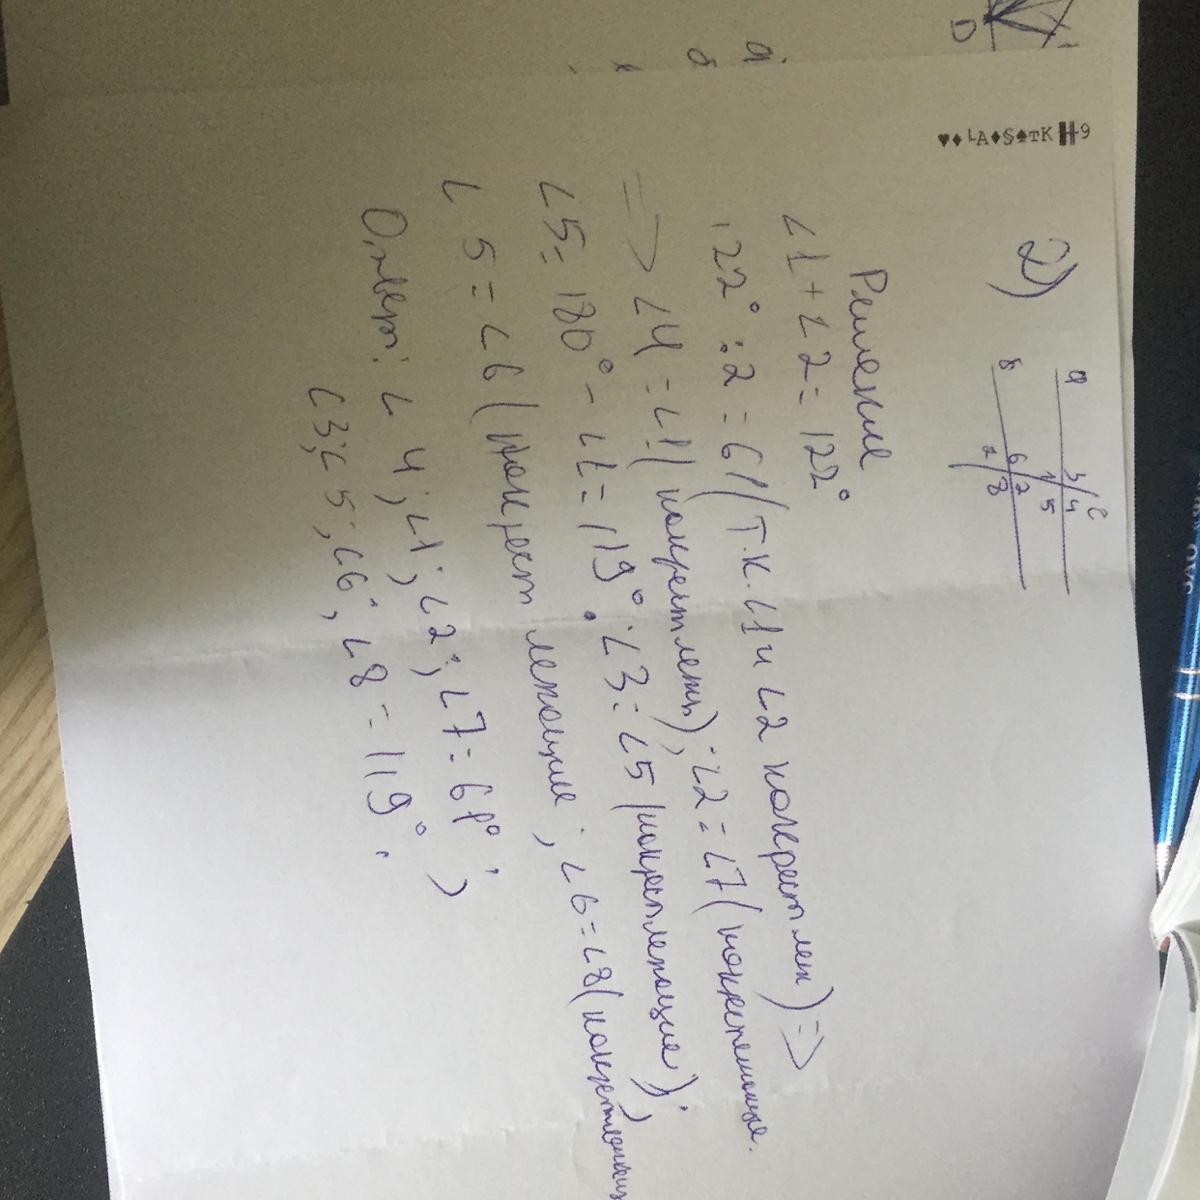 ♥♦ LA♦S♠TK H9
D
2)
a
3 / 4
c
1 / 5
в
6 / 2
7 / 8
Решение
∠1 + ∠2 = 122°
122° : 2 = 61 (т.к. ∠1 и ∠2 накрест леж) =>
=> ∠4 = ∠1 (накрест лежь); ∠2 = ∠7 (накрестлежащие.
∠5 = 180° - ∠1 = 119°. ∠3 = ∠5 (накрестлежащие);
∠5 = ∠6 (накрест лежащие; ∠6 = ∠8 (накрестлежащи
Ответ: ∠4; ∠1; ∠2; ∠7 = 61°;
∠3; ∠5; ∠6; ∠8 = 119°.